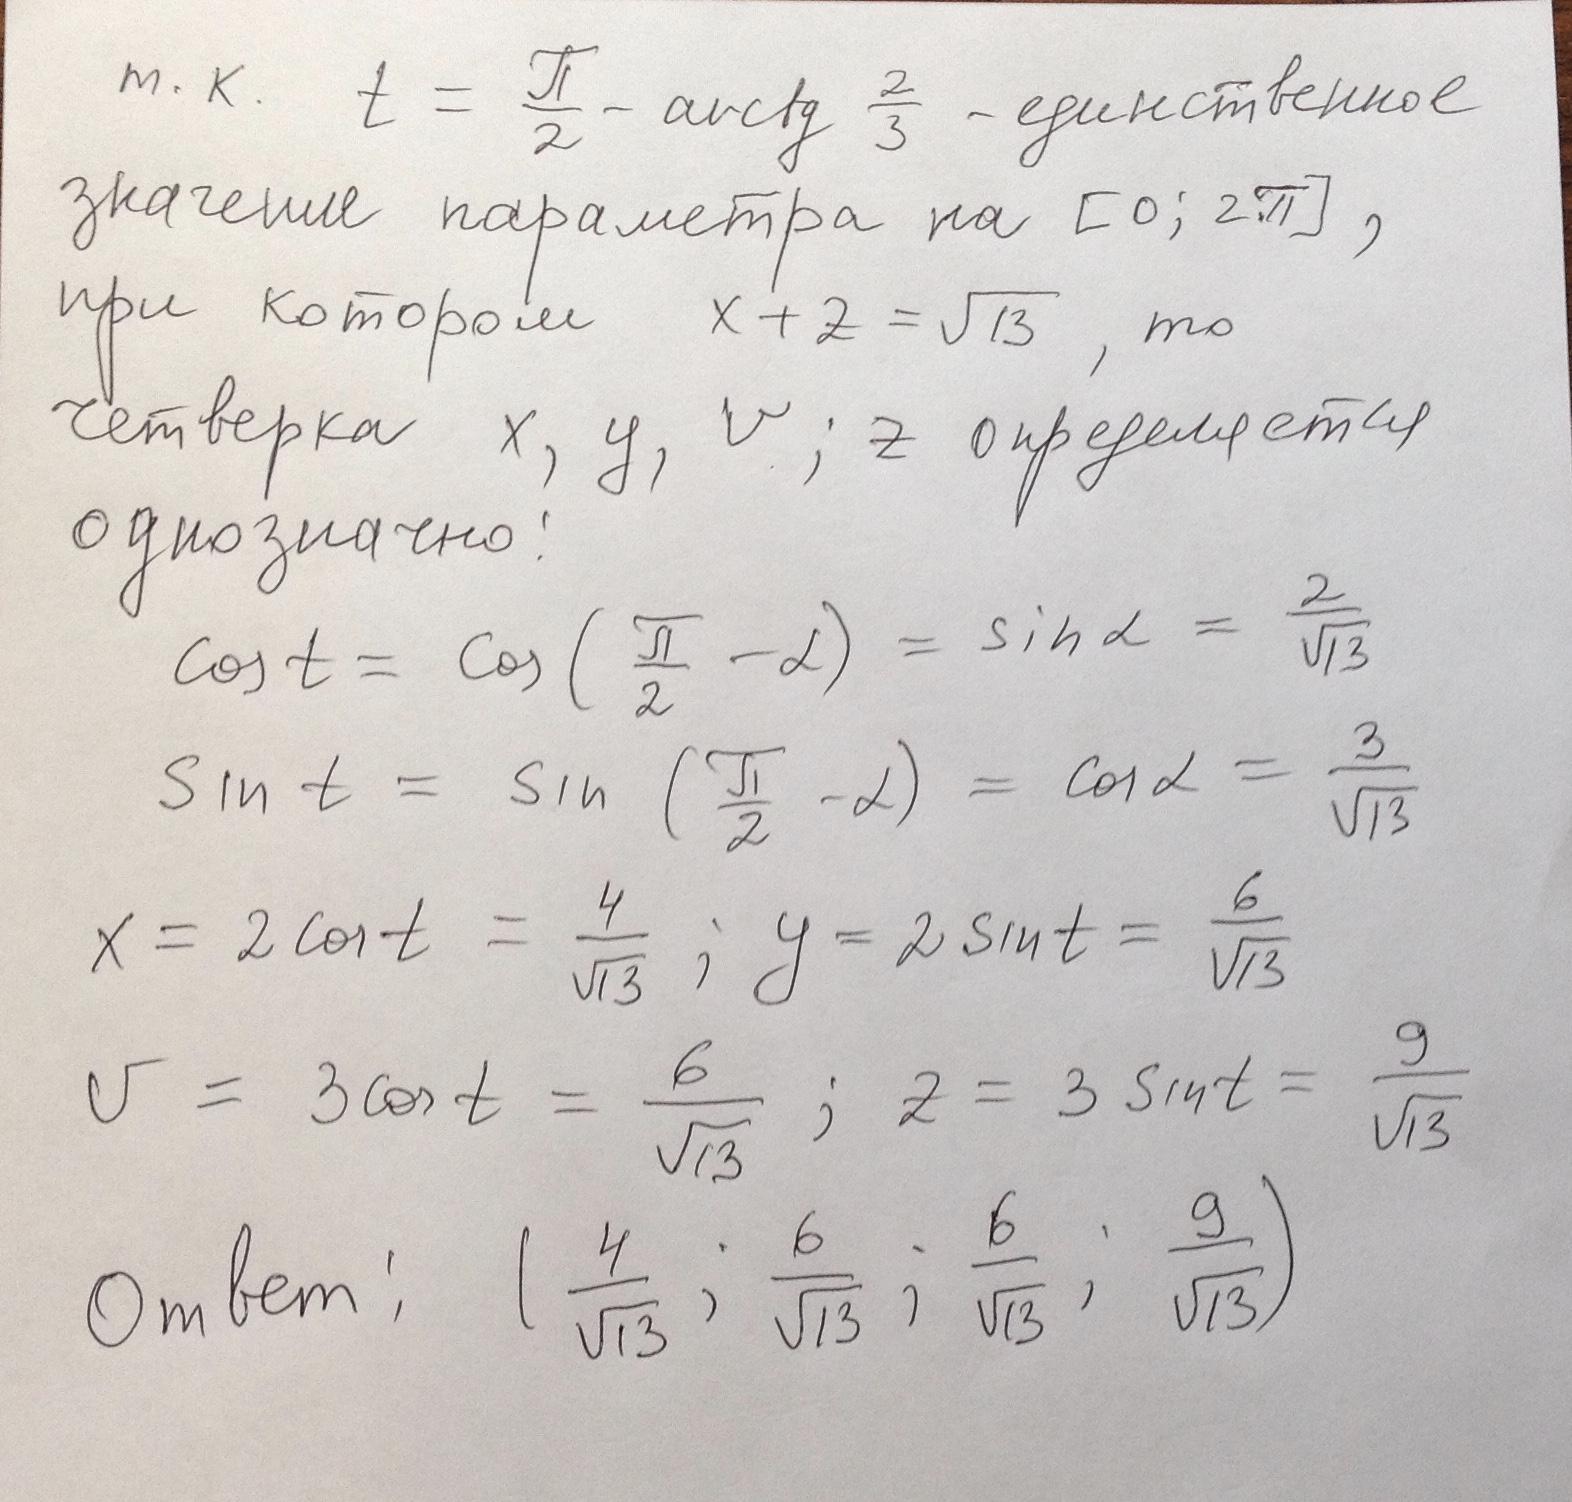 т.к. t = π/2 - arctg 2/3 - единственное
значение параметра на [0; 2π],
при котором x + z = √13, то
четверка x, y, v; z определяется
однозначно:
cos t = cos (π/2 - α) = sin α = 2/√13
sin t = sin (π/2 - α) = cos α = 3/√13
x = 2 cos t = 4/√13 ; y = 2 sin t = 6/√13
v = 3 cos t = 6/√13 ; z = 3 sin t = 9/√13
Ответ: (4/√13 ; 6/√13 ; 6/√13 ; 9/√13)